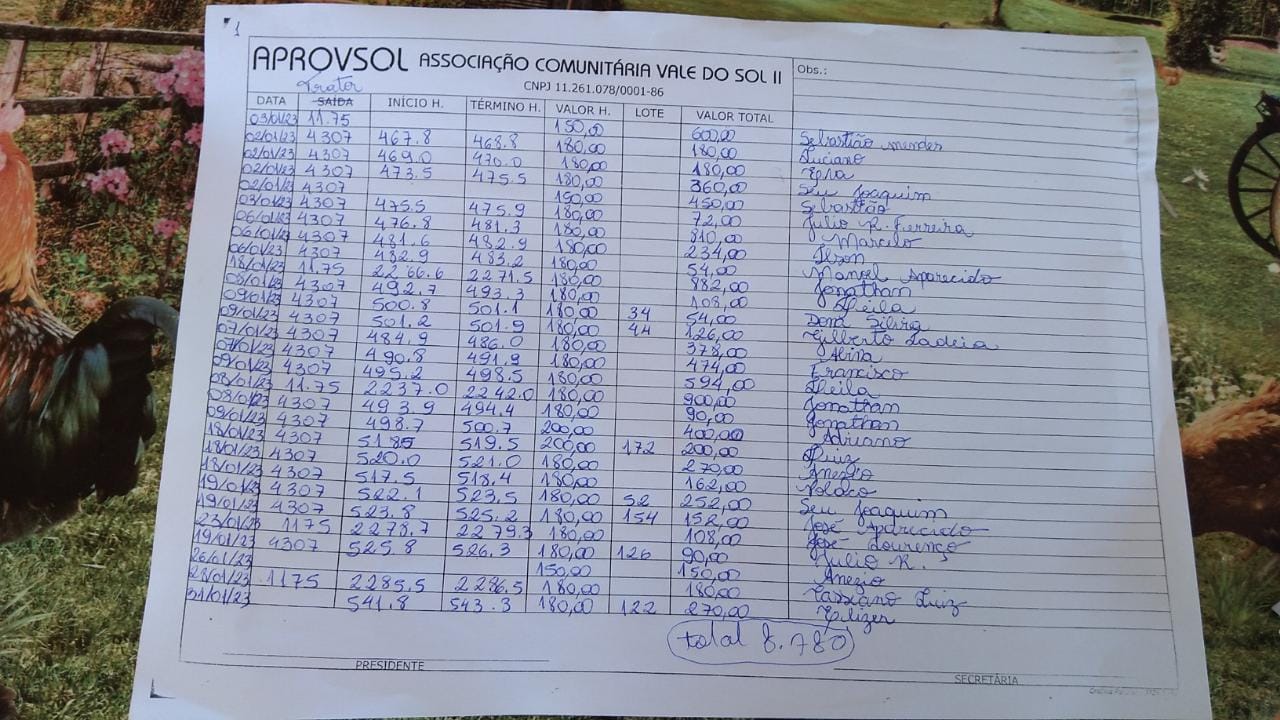 1
APROVSOL ASSOCIAÇÃO COMUNITÁRIA VALE DO SOL II
Obs.:
CNPJ 11.261.078/0001-86
Trator
DATA SAÍDA INÍCIO H. TÉRMINO H. VALOR H. LOTE VALOR TOTAL
03/01/23 11.75 150,00 600,00 Sebastião mendes
02/01/23 4307 467.8 468.8 180,00 180,00 Luciano
02/01/23 4307 469.0 470.0 180,00 180,00
02/01/23 4307 473.5 475.5 180,00 360,00 Seu Joaquim
02/01/23 4307 150,00 450,00 Sebastião
03/01/23 4307 475.5 475.9 180,00 72,00 Julio R. Ferreira
06/01/23 4307 476.8 481.3 180,00 810,00 Marcelo
06/01/23 4307 481.6 482.9 180,00 234,00 Ilson
06/01/23 4307 482.9 483.2 180,00 54,00 Manoel Aparecido
18/01/23 11.75 2266.6 2271.5 180,00 882,00 Jonathan
08/01/23 4307 492.7 493.3 180,00 108,00 Leila
09/01/23 4307 500.8 501.1 180,00 34 54,00 Dona Silvia
09/01/23 4307 501.2 501.9 180,00 44 126,00 Gilberto Ladeia
07/01/23 4307 484.9 486.0 180,00 378,00
07/01/23 4307 490.8 491.9 180,00 474,00 Francisco
09/01/23 4307 495.2 498.5 180,00 594,00 Leila
08/01/23 11.75 2237.0 2242.0 180,00 900,00 Jonathan
08/01/23 4307 493.9 494.4 180,00 90,00 Jonathan
09/01/23 4307 498.7 500.7 200,00 400,00 Adriano
18/01/23 4307 518.5 519.5 200,00 172 200,00 Luiz
18/01/23 4307 520.0 521.0 180,00 270,00 Anezio
18/01/23 4307 517.5 518.4 180,00 162,00 Polaco
19/01/23 4307 522.1 523.5 180,00 52 252,00 Seu Joaquim
19/01/23 4307 523.8 525.2 180,00 154 152,00 José Aparecido
23/01/23 1175 2278.7 2279.3 180,00 108,00 José Lourenço
19/01/23 4307 525.8 526.3 180,00 126 90,00 Julio R.
26/01/23 150,00 150,00 Anezio
28/01/23 1175 2285.5 2286.5 180,00 180,00 Cassiano Luiz
31/01/23 541.8 543.3 180,00 122 270,00 Elizer
total 8.780
PRESIDENTE
SECRETÁRIA